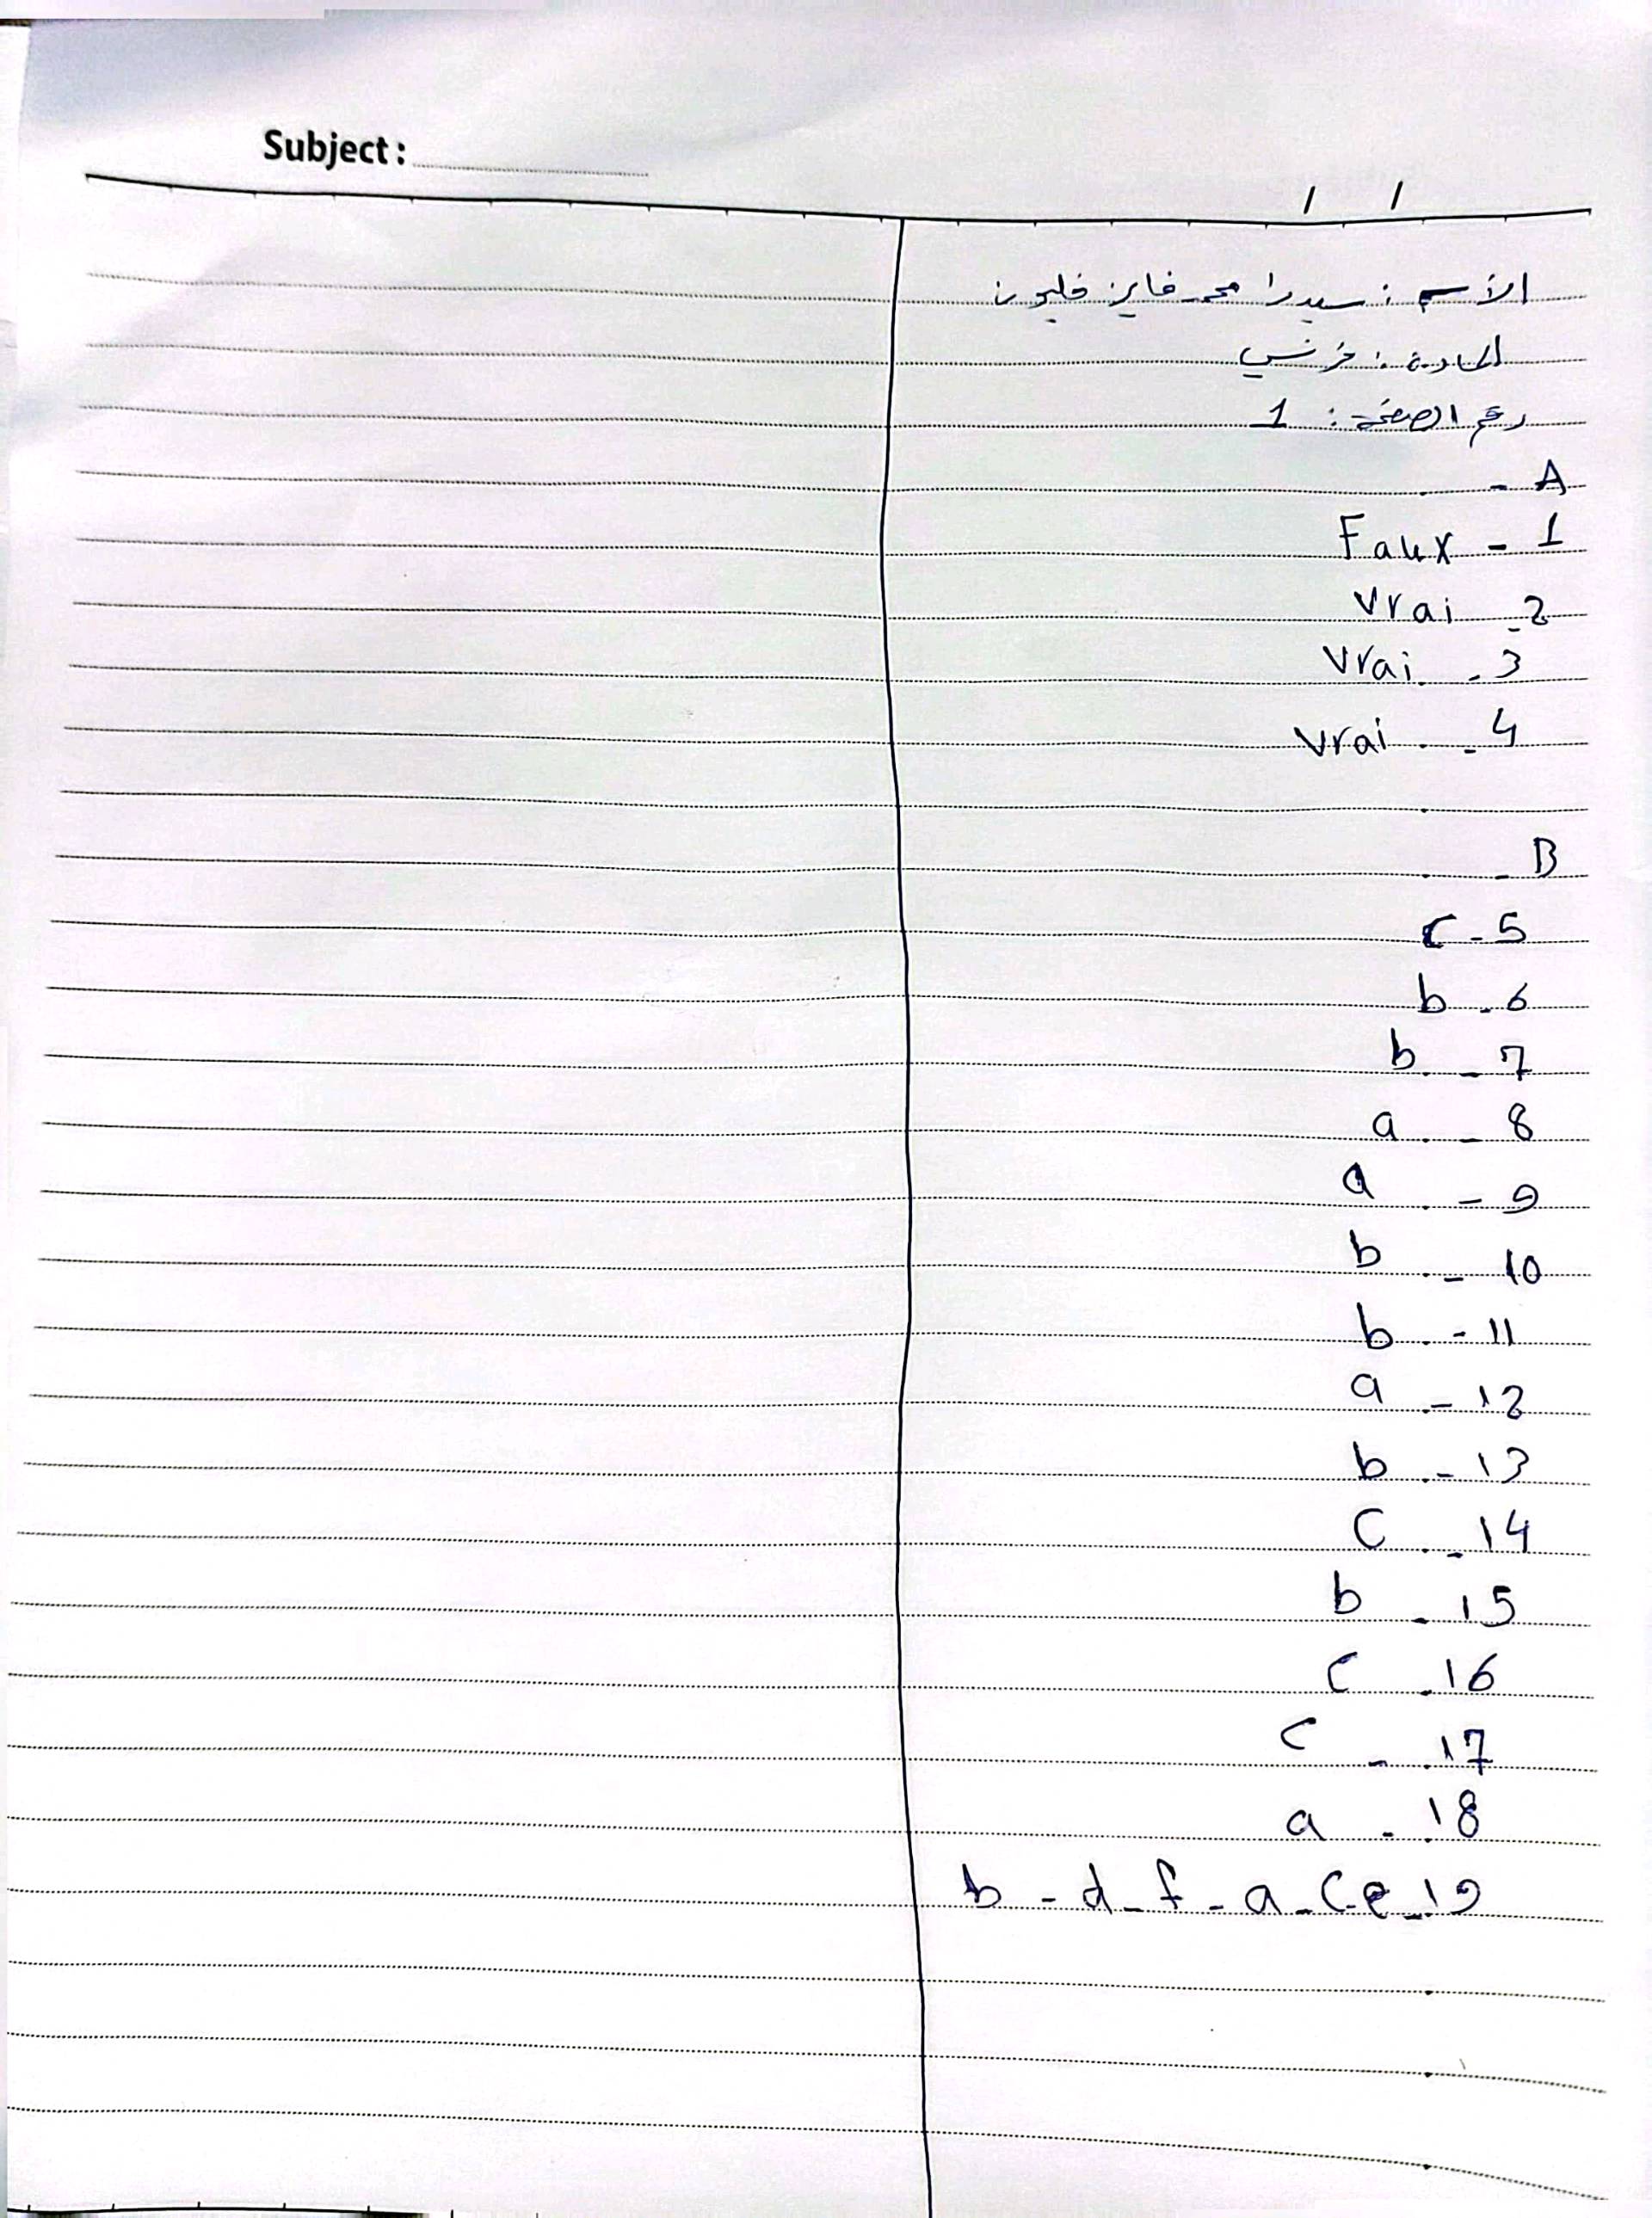 Subject :
/ /
الأسم : سيدرا محمد فايز قليون
المادة : فرنسي
رقم الصفحة : 1
A -
1 - Faux
2 - Vrai
3 - Vrai
4 - Vrai
B -
5 - c
6 - b
7 - b
8 - a
9 - a
10 - b
11 - b
12 - a
13 - b
14 - c
15 - b
16 - c
17 - c
18 - a
19 - e - c - a - f - d - b